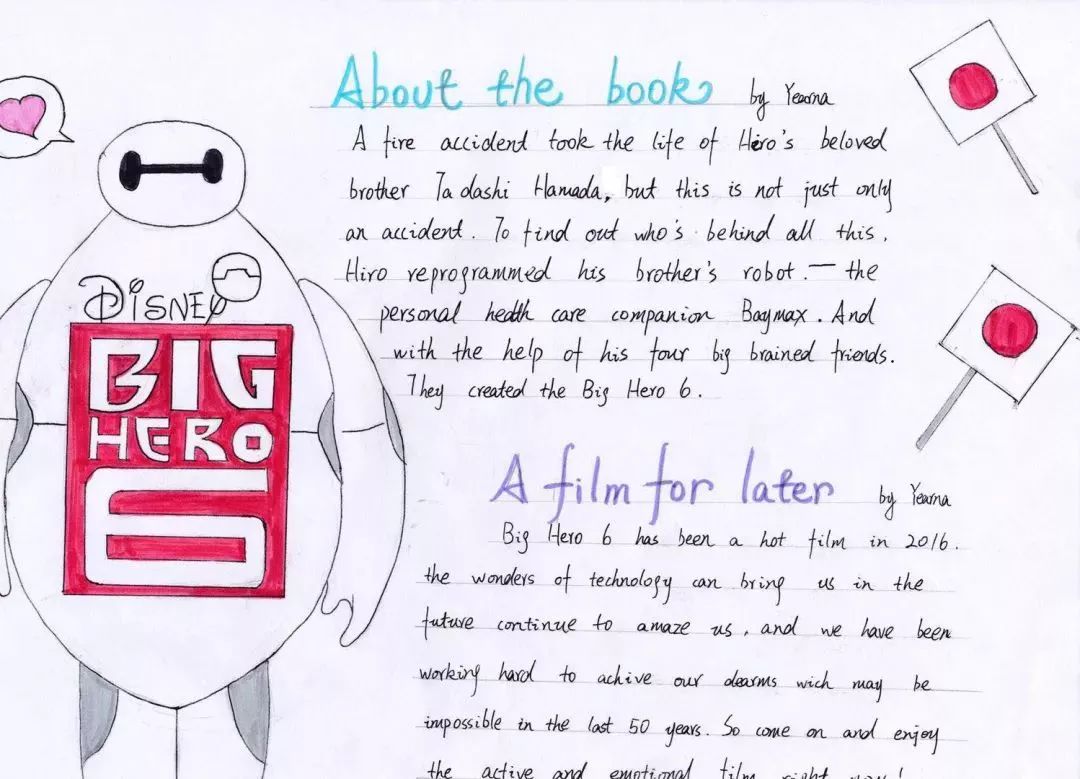 About the book by Yearna
A fire accident took the life of Hiro's beloved
brother Tadashi Hamada, but this is not just only
an accident. To find out who's behind all this,
Hiro reprogrammed his brother's robot. — the
personal health care companion Baymax. And
with the help of his four big brained friends.
They created the Big Hero 6.
DISNEY
BIG
HERO
6
A film for later by Yearna
Big Hero 6 has been a hot film in 2016.
the wonders of technology can bring us in the
future continue to amaze us, and we have been
working hard to achive our dearms wich may be
impossible in the last 50 years. So come on and enjoy
the active and emotional film right now!